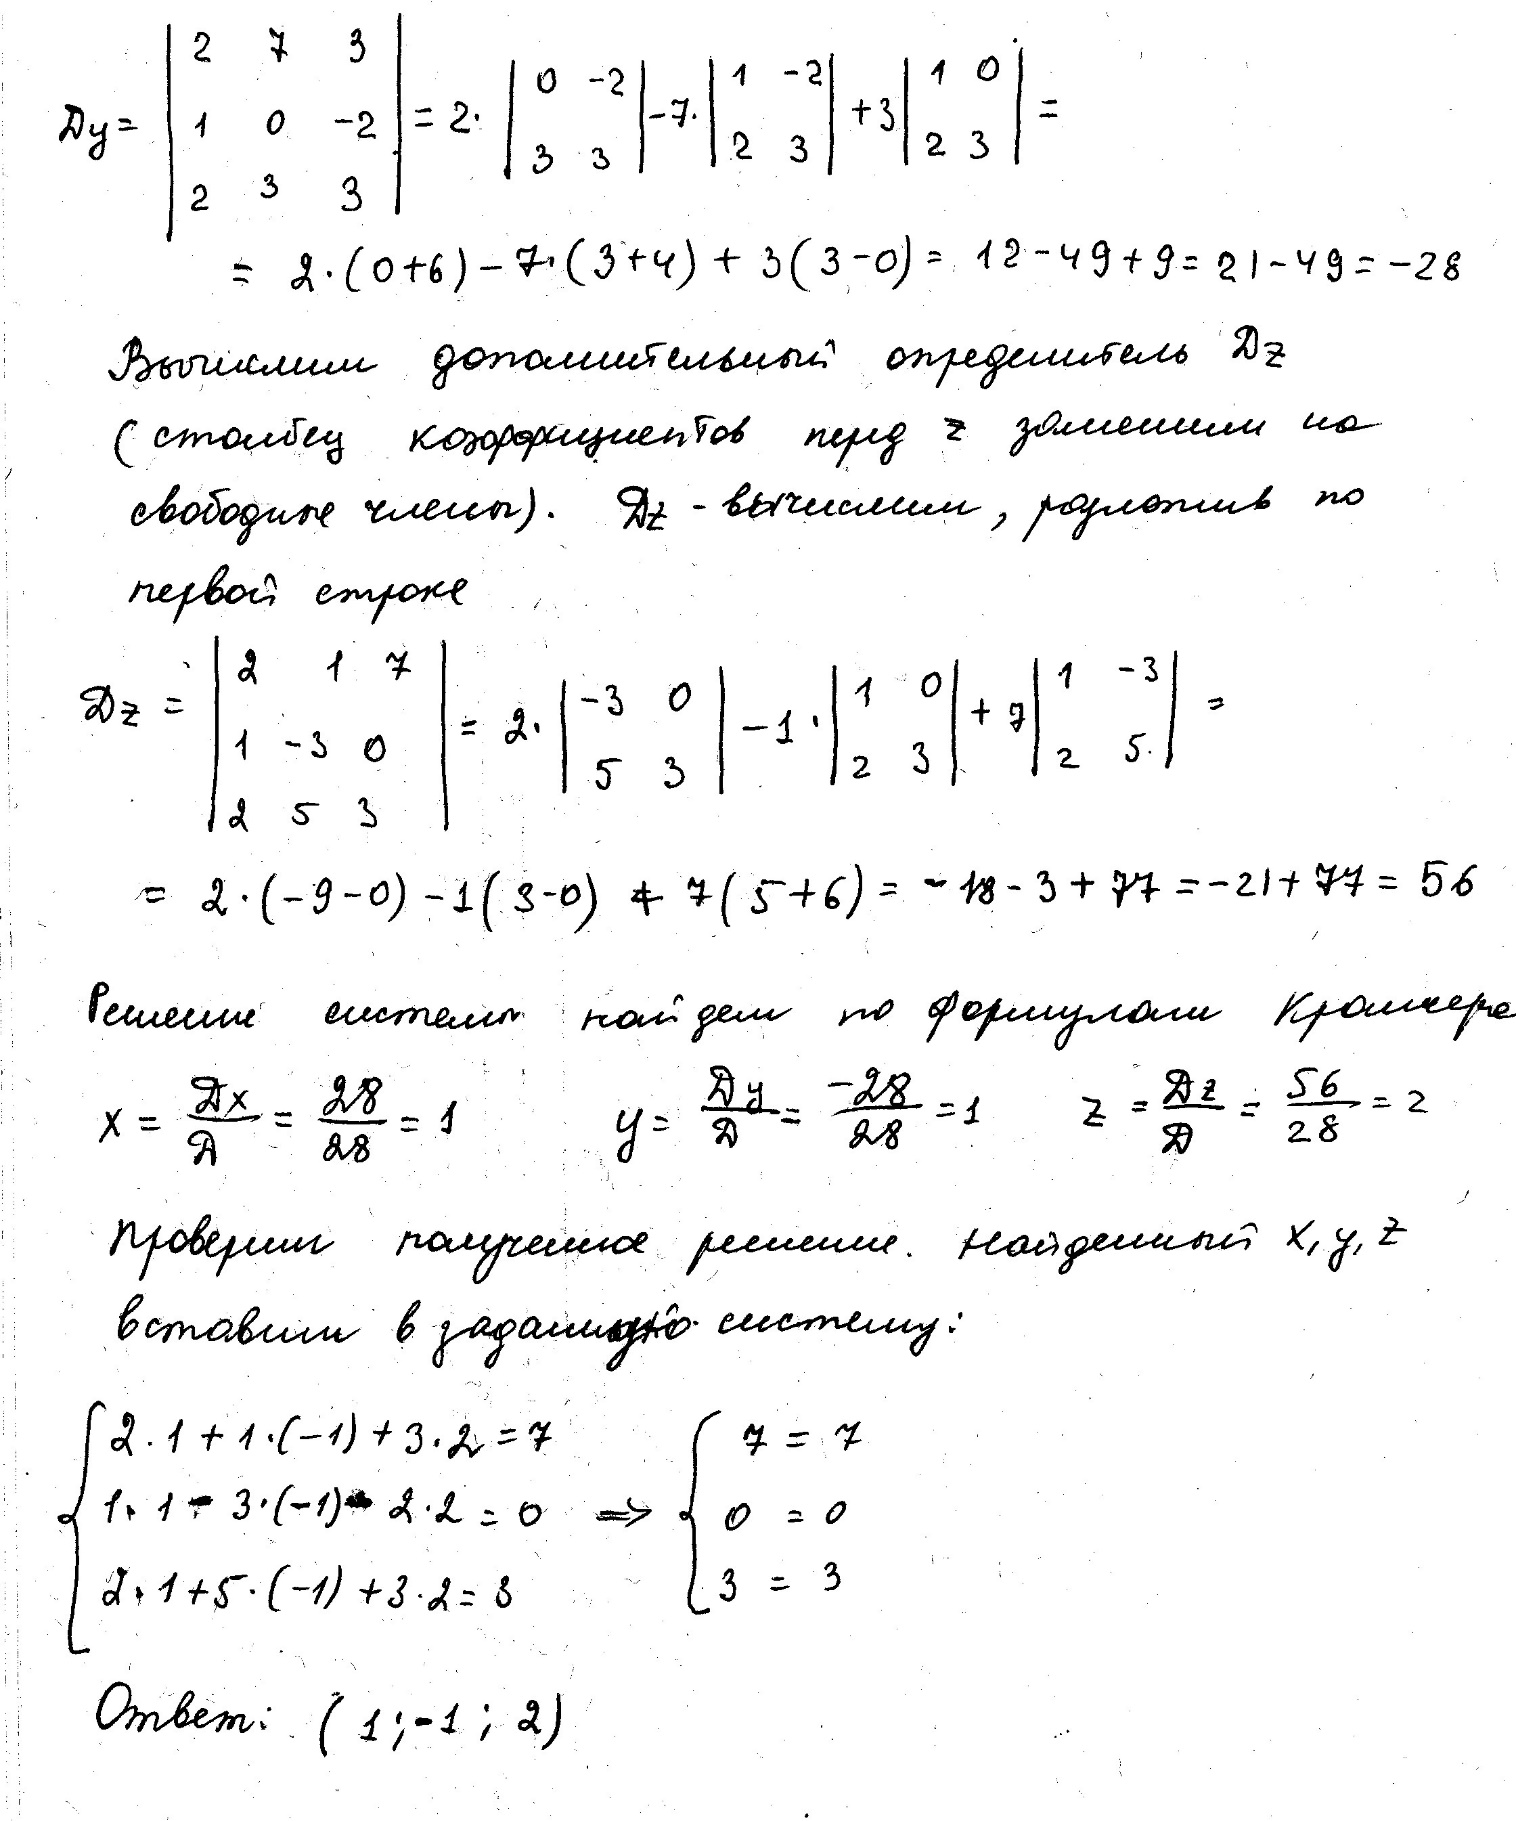 Dy = | 2 7 3 | = 2· | 0 -2 | -7· | 1 -2 | +3 | 1 0 | =
| 1 0 -2 |
| 2 3 3 | | 3 3 | | 2 3 | | 2 3 |
= 2·(0+6) - 7·(3+4) + 3(3-0) = 12-49+9 = 21-49 = -28
Вычислим дополнительный определитель Dz
(столбец коэффициентов перед z заменим на
свободные члены). Dz - вычислим, разложив по
первой строке
Dz = | 2 1 7 | = 2· | -3 0 | -1· | 1 0 | + 7 | 1 -3 | =
| 1 -3 0 |
| 2 5 3 | | 5 3 | | 2 3 | | 2 5 |
= 2·(-9-0) -1(3-0) + 7(5+6) = -18-3+77 = -21+77 = 56
Решение системы найдем по формулам Крамера
x = Dx/D = 28/28 = 1 y = Dy/D = -28/28 = 1 z = Dz/D = 56/28 = 2
Проверим полученное решение. Найденный x, y, z
вставим в заданную систему:
{ 2·1+1·(-1)+3·2=7 { 7 = 7
1·1-3·(-1)-2·2=0 => 0 = 0
2·1+5·(-1)+3·2=3 3 = 3
Ответ: (1;-1;2)